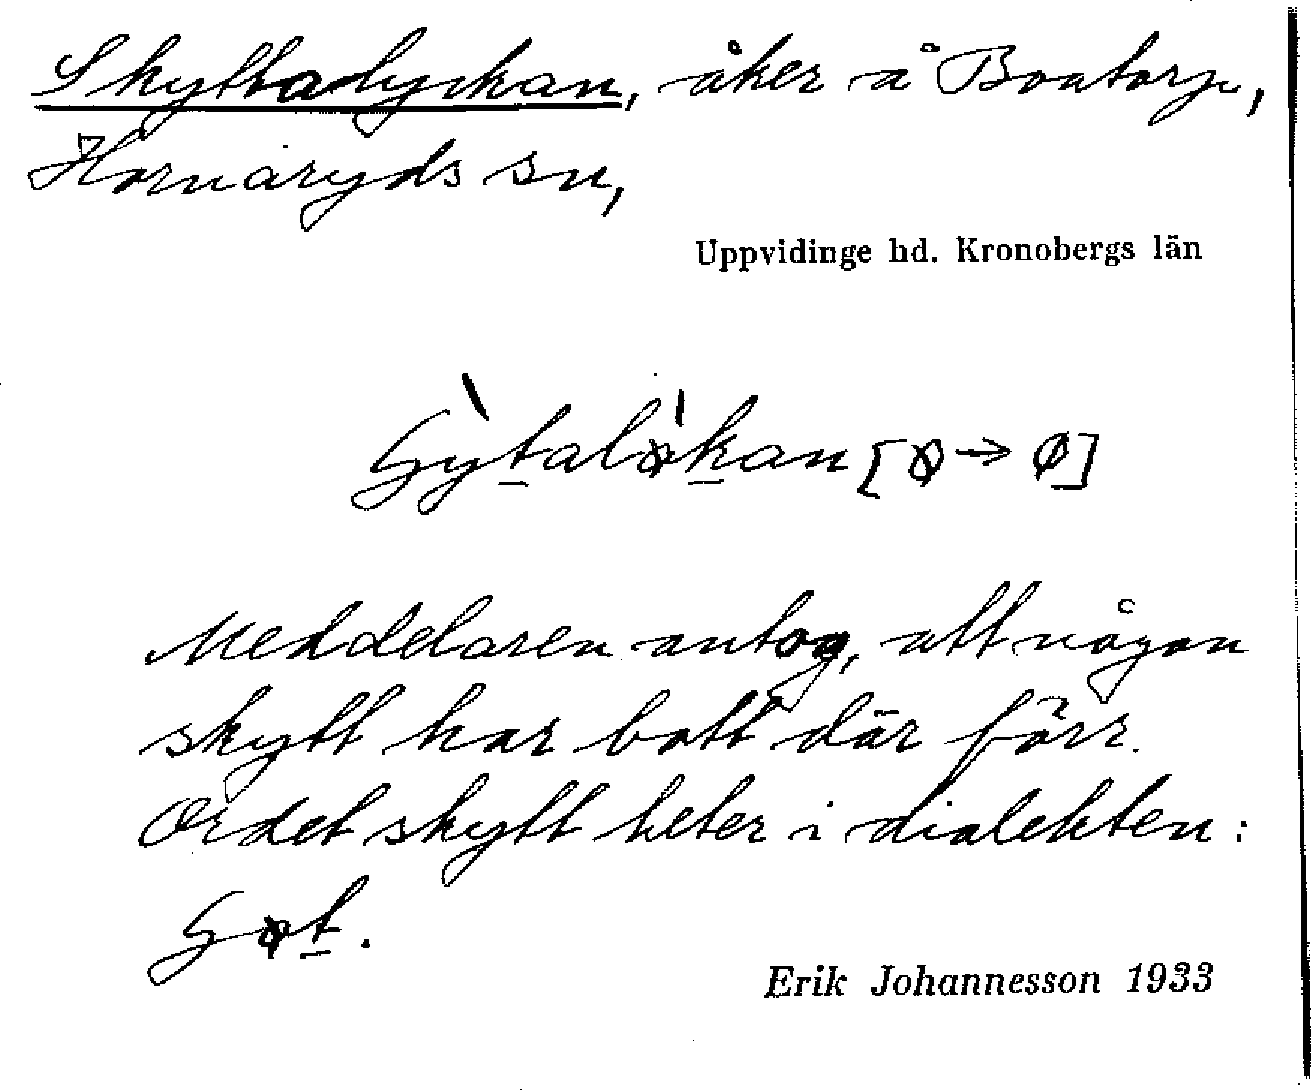 Skyttalyckan, åker å Boatorp,
Hornaryds sn,
Uppvidinge hd. Kronobergs län
Meddelaren antog, att någon
skytt har bott där förr.
Ordet skytt heter i dialekten:
Erik Johannesson 1933